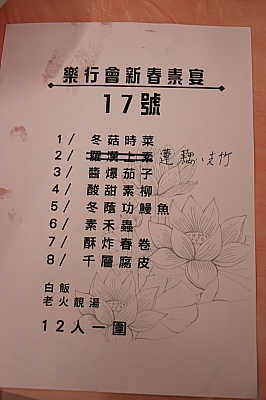 樂行會新春素宴
17號
1/ 冬菇時菜
2/ 羅漢上素 蓮藕,支竹
3/ 醬爆茄子
4/ 酸甜素柳
5/ 冬蔭功鰻魚
6/ 素禾蟲
7/ 酥炸春卷
8/ 千層腐皮
白飯
老火靚湯
12人一圍